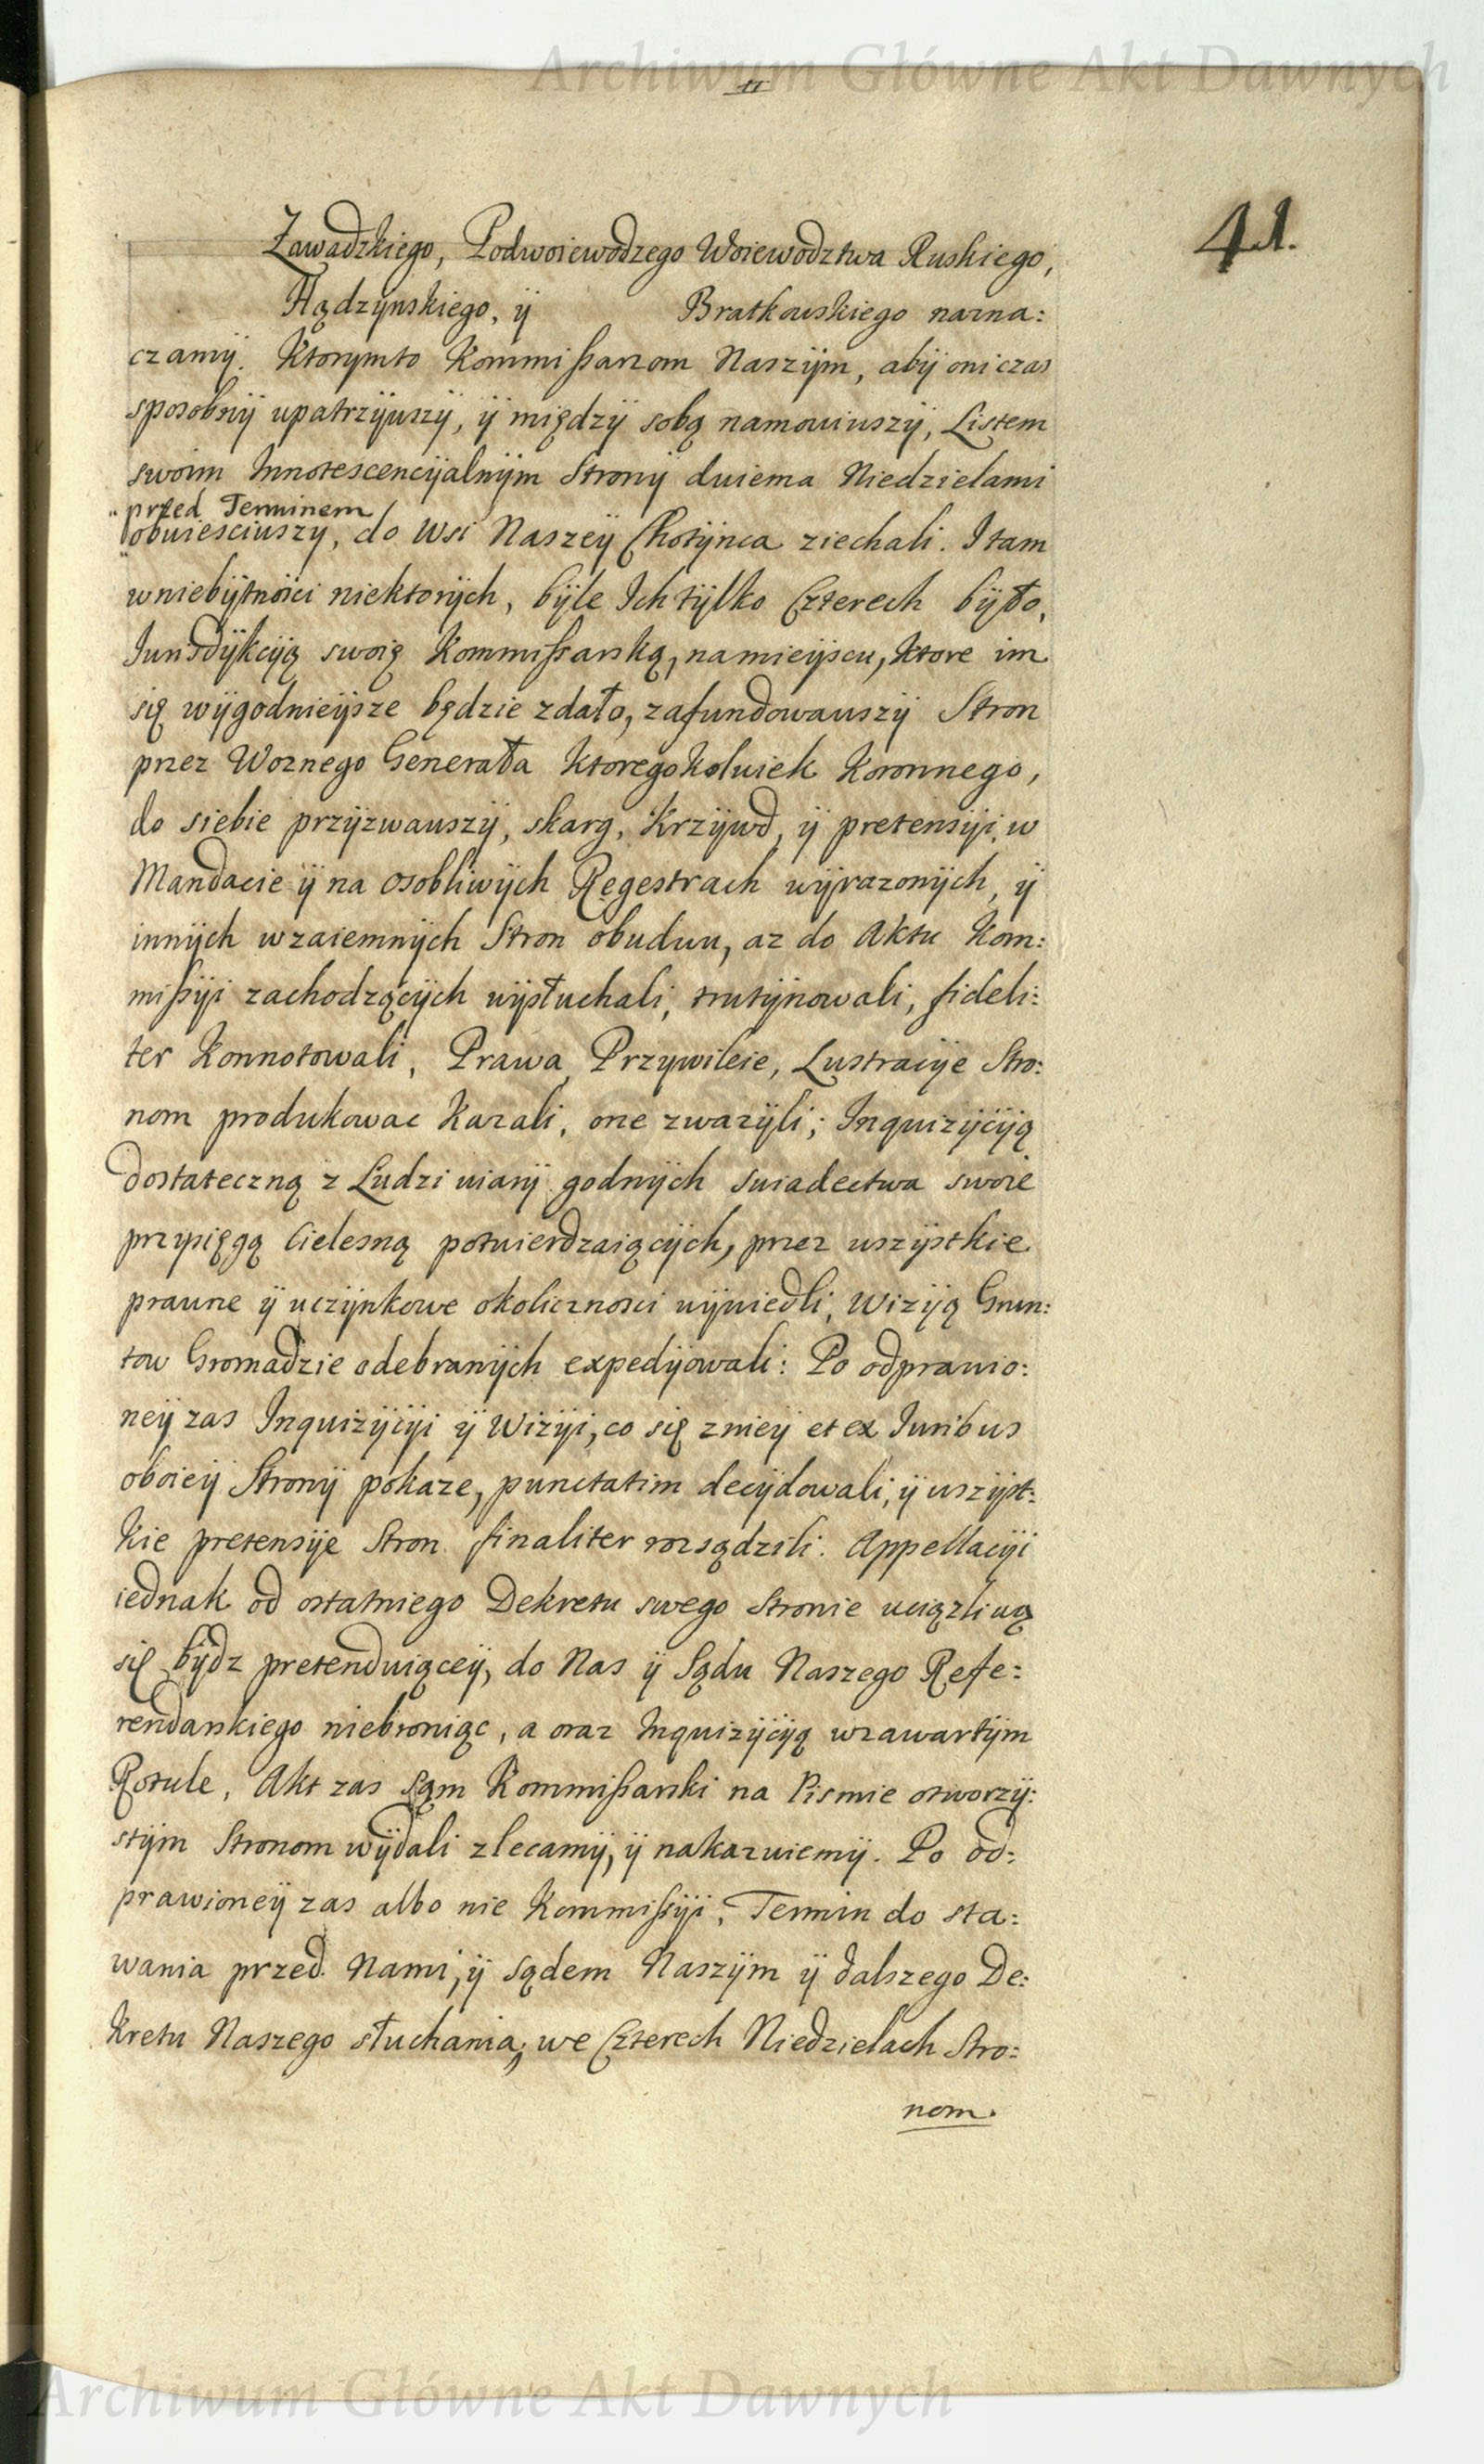 Archiwum Główne Akt Dawnych
11
41.
Zawadzkiego, Podwoiewodzego Woiewodztwa Ruskiego,
Hądzynskiego, ÿ Bratkowskiego nazna:
czamÿ. Ktorymto Kommißarzom Naszÿm, abÿ oni czas
sposobnÿ upatrzÿwszÿ, ÿ międzÿ sobą namowiwszÿ, Listem
swoim Innotescencÿalnÿm Stronÿ dwiema Niedzielami
przed Terminem
obwiesciwszy, do Wsi Naszeÿ Chotÿnca ziechali. I tam
w niebÿtnosci niektorÿch, bÿle Ich tÿlko Czterech bÿło,
Jurisdÿkcÿą swoię Kommißarską, na mieÿscu, ktore im
się wÿgodnieÿsze będzie zdało, zafundowawszÿ Stron
przez Woznego Generała ktoregokolwiek Koronnego,
do siebie przÿzwawszÿ, skarg, krzÿwd, ÿ pretensÿi, w
Mandacie ÿ na osobliwÿch Regestrach wÿrazonÿch, ÿ
innÿch wzaiemnÿch Stron obudwu, az do Aktu Kom:
mißÿi zachodzącÿch wÿsłuchali, trutÿnowali, fideli:
ter konnotowali, Prawa, Przywileie, Lustracÿe Stro:
nom produkowac kazali, one zwazÿli; Inquizÿcÿą
dostateczną z Ludzi wiarÿ godnÿch swiadectwa swoie
przysięgą Cielesną potwierdzaiącÿch, przez wszÿstkie
prawne ÿ uczÿnkowe okolicznosci wÿwiedli, Wizÿą Grun:
tow Gromadzie odebranÿch expedÿowali: Po odprawio:
neÿ zas Inquizÿcÿi ÿ Wizÿi, co się z nieÿ et ex Juribus
oboieÿ Stronÿ pokaze, punctatim decÿdowali, ÿ wszÿst:
kie pretensÿe Stron finaliter rozsądzili. Appellacÿi
iednak od ostatniego Dekretu swego Stronie uciązliwą
się bÿdz pretenduiąceÿ, do Nas ÿ Sądu Naszego Refe:
rendarskiego niebroniąc, a oraz Inquizÿcÿą w zawartÿm
Rotule, Akt zas sam Kommißarski na Pismie otworzÿ:
stÿm Stronom wÿdali zlecamÿ, ÿ nakazuiemÿ. Po od:
prawioneÿ zas albo nie Kommißÿi, Termin do sta:
wania przed Nami, ÿ sądem Naszÿm ÿ dalszego De:
kretu Naszego słuchania, we Czterech Niedzielach Stro:
nom.
Archiwum Główne Akt Dawnych